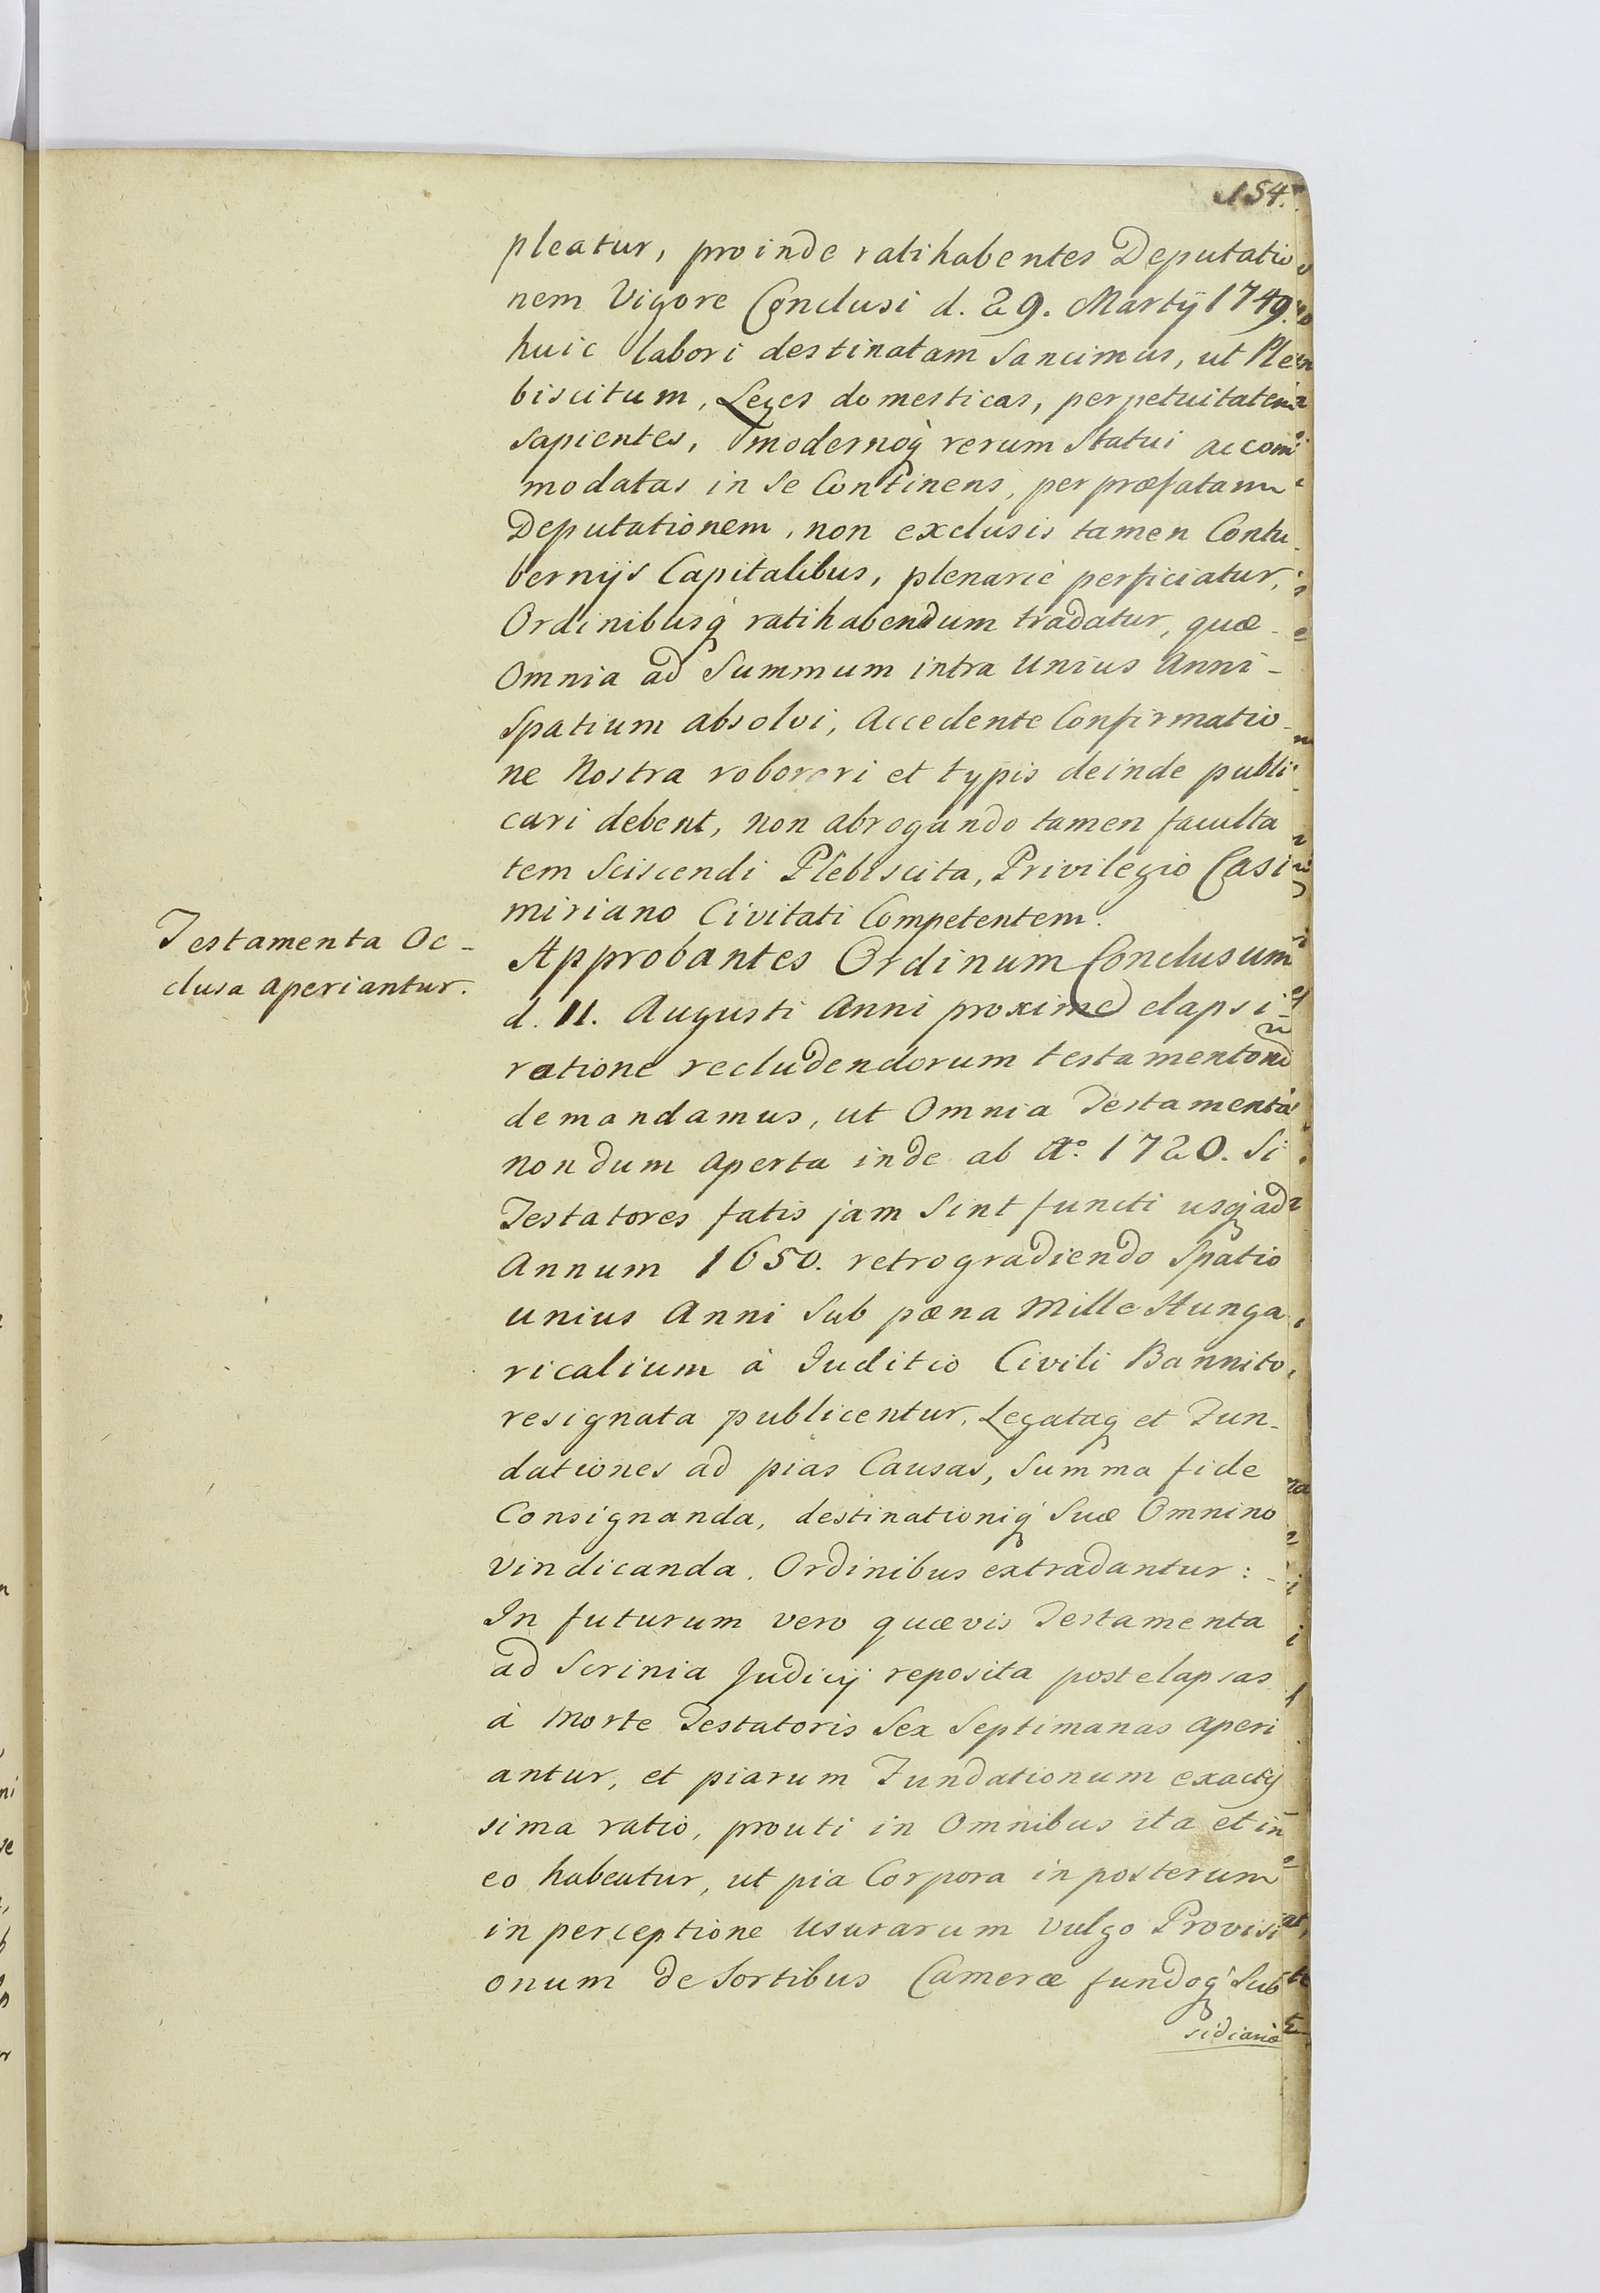 154.
pleatur, proinde ratihabentes Deputatio
nem Vigore Conclusi d. 29. Martij 1749.
huic labori destinatam Sancimus, ut Ple
biscitum, Leges domesticas, perpetuitatem
sapientes, modernoq́ rerum Statui accom
modatas in Se Continens, per præfatam
Deputationem, non exclusis tamen Contu
bernijs Capitalibus, plenarié perficiatur,
Ordinibusq́ ratihabendum tradatur, quæ
Omnia ad Summum intra Unius Anni -
Spatium absolvi, Accedente Confirmatio
ne Nostra roborari et typis deinde publi
cari debent, non abrogando tamen faculta
tem Sciscendi Plebiscita, Privilegio Casi
miriano Civitati Competentem.
Testamenta Oc -
clusa aperiantur.
Approbantes Ordinum Conclusum
d. 11. Augusti Anni proxime elapsi
ratione recludendorum testamentorū
demandamus, ut Omnia Testamenta
nondum aperta inde ab Aº. 1720. Si
Testatores fatis jam Sint functi usq́ ad
Annum 1650. retrogradiendo Spatio
unius Anni Sub pæna Mille Hunga
ricalium à Juditio Civili Bannito
resignata publicentur, Legataq́ et Fun-
dationes ad pias Causas, Summa fide
Consignanda, destinationiq́ Suæ Omnino
vindicanda, Ordinibus extradantur: -
In futurum vero quævis Testamenta
ad Scrinia Judicij reposita post elapsas
à Morte Testatoris Sex Septimanas aperi
antur, et piarum Fundationum exactis
sima ratio, prouti in Omnibus ita et in
eo habeatur, ut pia Corpora in posterum
in perceptione Usurarum vulgo Provisi
onum de Sortibus Cameræ fundoq́ Sub
sidiario